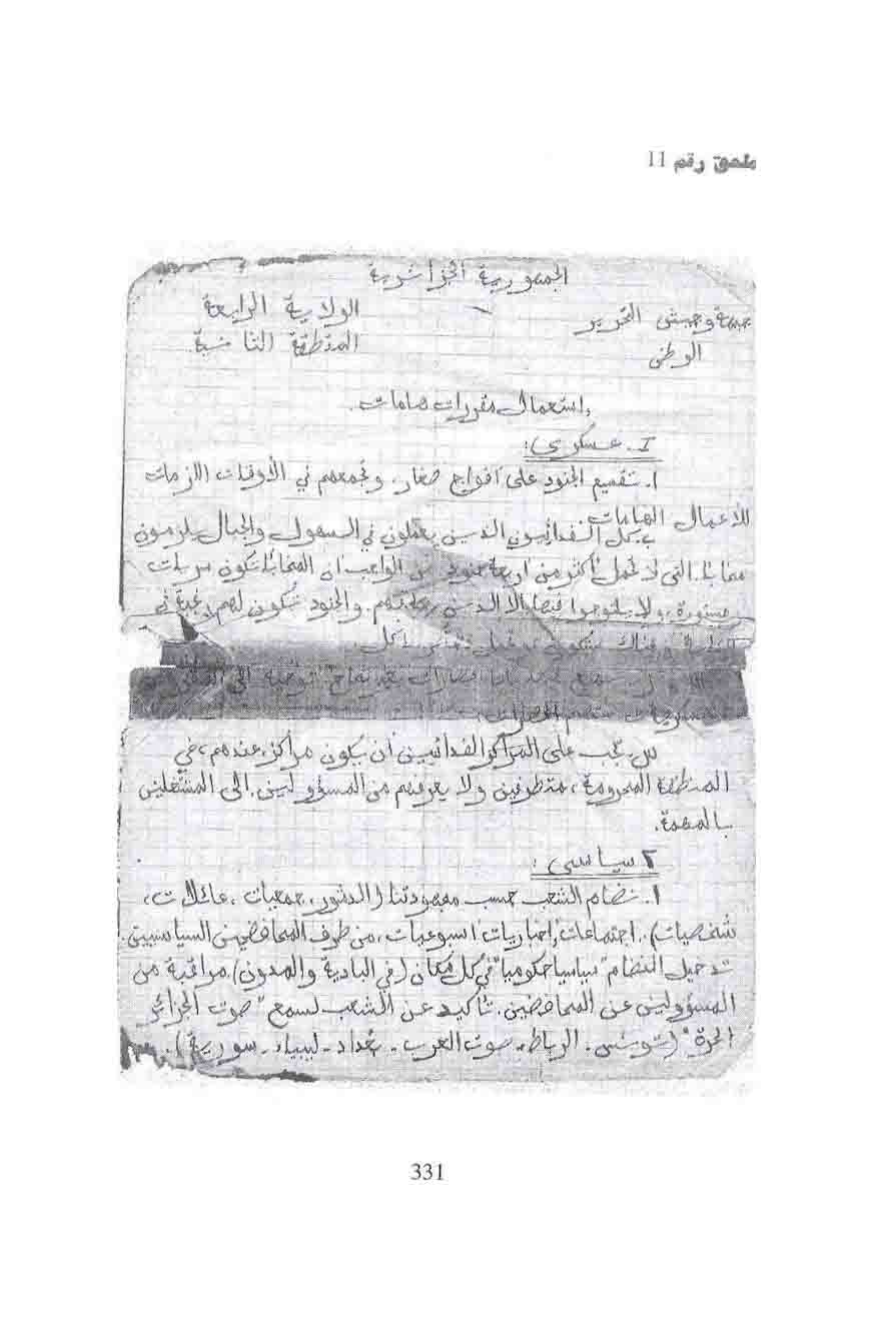 ملحق رقم 11
الجمهورية الجزائرية
جبهة وجيش التحرير الولاية الرابعة
الوطني المنطقة الثانية
إستعمال مقررات هامات.
I. عسكري:
ا. تقسيم الجنود على أفواج صغار، وتجمعهم في الأوقات اللازمات
للأعمال الهامات.
ب كل الفدائيون الذين يعملون في السهول والجبال يلزمون
مخابئ التي لا تحمل أكثر من أربعة جنود من الواجب أن المخابئ تكون سريات
مستورة، ولا يلوجوا فيها إلا الذين والجنود تكون لهم
س، يجب على المراكز الفدائيين أن يكون مراكز عندهم، في
المنطقة المحرومة، متطرفين ولا يعرفهم من المسؤولين. إلى المشتغلين
بالمهمة.
٢ سياسي:
ا. نضام الشعب حسب مجهودتنا (الدشور، جمعيات، عائلات،
شخصيات). اجتماعات، إخباريات أسبوعيات، من طرف المحافضين السياسيين.
تدخيل النضام "سياسيا حكوميا" في كل مكان (في البادية والمدون). مراقبة من
المسؤولين عن المحافضين. تأكيد عن الشعب لسمع "صوت الجزائر
الحرة" (تونس. الرباط. صوت العرب. بغداد. ليبياء. سورية).
331